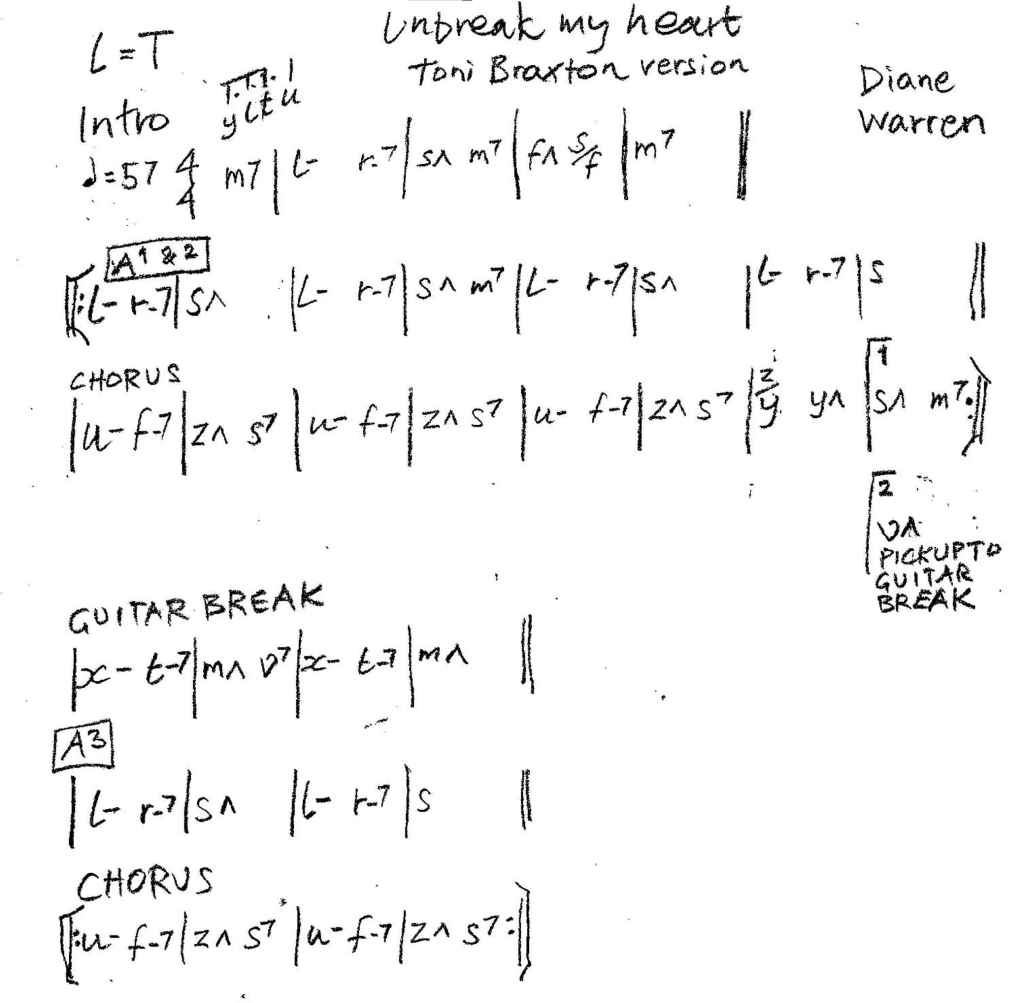 L=T
Unbreak my heart
Toni Braxton version
Diane
Warren
Intro
T.T.T. l
y l t u
♩=57 4/4 m7 | L- r-7 | s∧ m7 | f∧ s/f | m7 ||
A1 & 2
|: L- r-7 | s∧ | L- r-7 | s∧ m7 | L- r-7 | s∧ | L- r-7 | s ||
CHORUS
| u- f-7 | z∧ s7 | u- f-7 | z∧ s7 | u- f-7 | z∧ s7 | z/y y∧ | 1 s∧ m7 :|
2
v∧
PICKUP TO
GUITAR
BREAK
GUITAR BREAK
| x- t-7 | m∧ v7 | x- t-7 | m∧ ||
A3
| L- r-7 | s∧ | L- r-7 | s ||
CHORUS
|: u- f-7 | z∧ s7 | u- f-7 | z∧ s7 :|